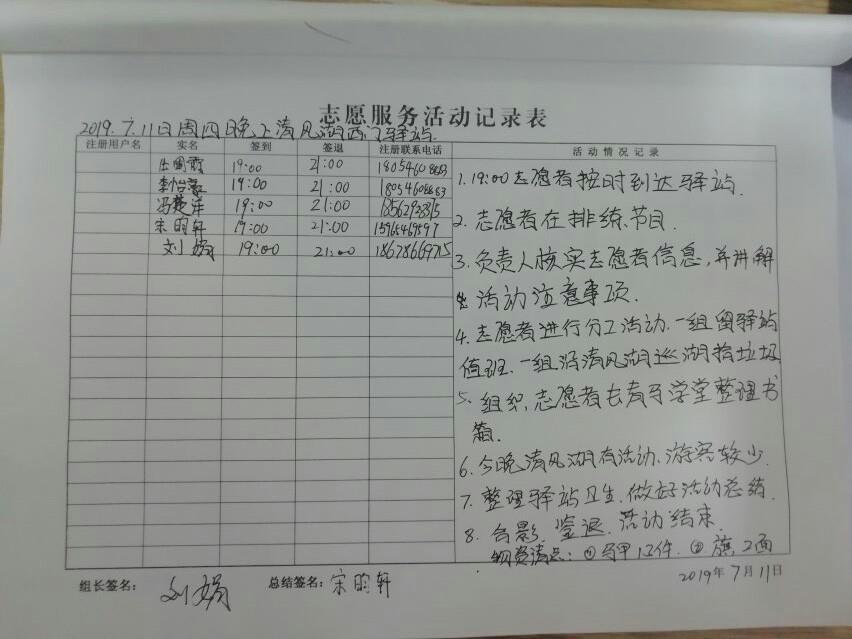 志愿服务活动记录表
2019.7.11日周四晚上清风湖西门驿站.
注册用户名 实名 签到 签退 注册联系电话 活动情况记录
19:00 21:00
李怡蒙 19:00 21:00
冯楚洋 19:00 21:00
宋昀轩 19:00 21:00
刘娟 19:00 21:00 18678669715
1. 19:00志愿者按时到达驿站.
2. 志愿者在排练节目.
3. 负责人核实志愿者信息,并讲解
活动注意事项.
4. 志愿者进行分工活动.一组留驿站
值班.一组沿清风湖巡湖捡垃圾
5. 组织志愿者去青于学堂整理书
箱.
6. 今晚清风湖有活动、游客较少.
7. 整理驿站卫生.做好活动总结.
8. 合影.签退.活动结束.
物资清点:①马甲12件.②旗2面
组长签名: 刘娟 总结签名: 宋昀轩 2019年7月11日